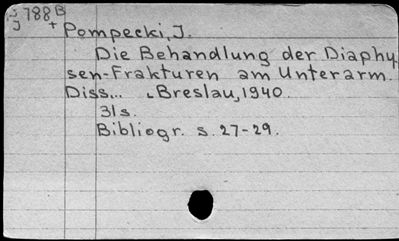 788B
J + Pompecki, J.
Die Behandlung der Diaphy-
sen-Frakturen am Unterarm.
Diss... Breslau, 1940.
31 s.
Bibliogr. s. 27-29.